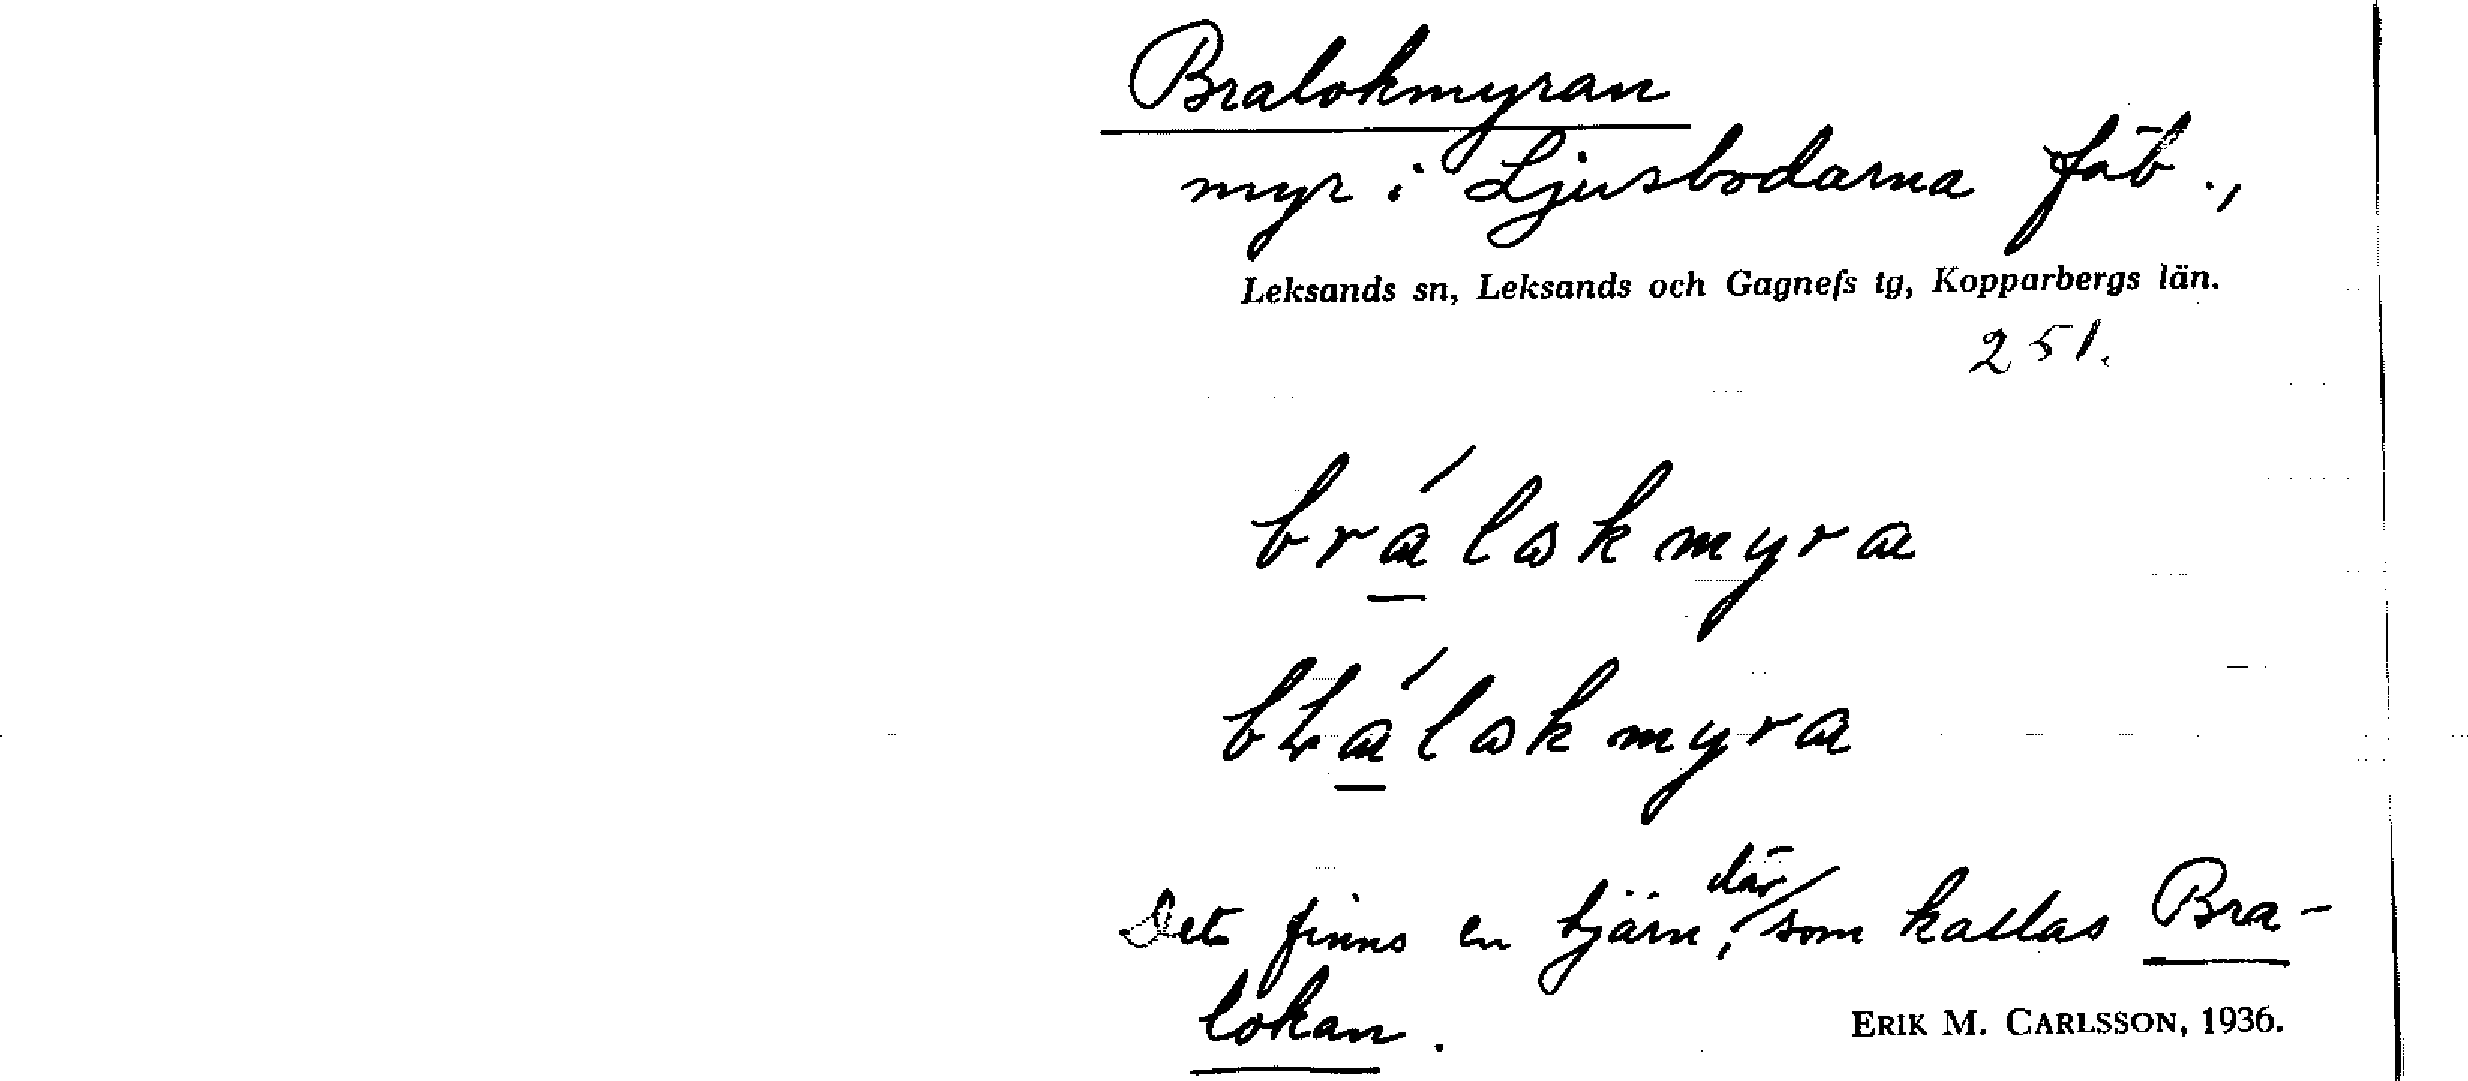 Bralokmyran
myr i Ljusbodarna fäb.,
Leksands sn, Leksands och Gagnefs tg, Kopparbergs län.
251.
brálokmyra
brálokmyra
Det finns en tjärn där, som kallas Bra-
lokan.
ERIK M. CARLSSON, 1936.